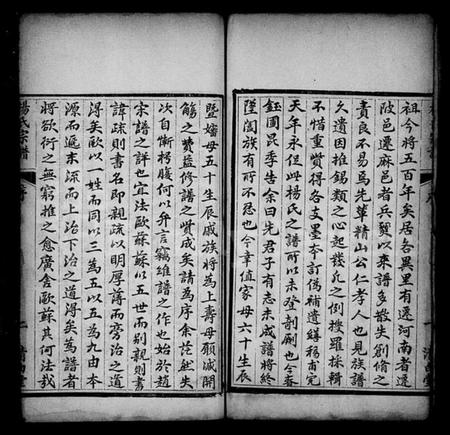 祖今將五百年矣居各異里有遷河南者遷
陂邑遷麻邑者兵燹以來譜多散失創脩之
責良不易焉先輩精山公仁孝人也見族譜
久遺因推錫類之心起發凡之例搜羅採輯
不惜重貲得各支墨本訂偽補遺繕稿甫完
天年永促此楊氏之譜所以未登剞劂也今春
鈺圃昆季告余曰先君子有志未成譜將終
墜闔族有所不忍也今幸值家母六十生辰
暨嬸母五十生辰戚族將為上壽母願減開
觴之費益修譜之貲成矣請為序余茫然失
次自慚枵腹何以弁言竊維譜之作也始於趙
宋譜之詳也宜法歐蘇蘇以五世而別親則書
諱疏則書名即親疏以明厚薄而旁治之道
得矣歐以一姓而同以三為五以五為九由本
源而遞末流而上治下治之道得矣為譜者
將欲衍之無窮推之愈廣舍歐蘇其何法哉
楊氏宗譜
清白堂